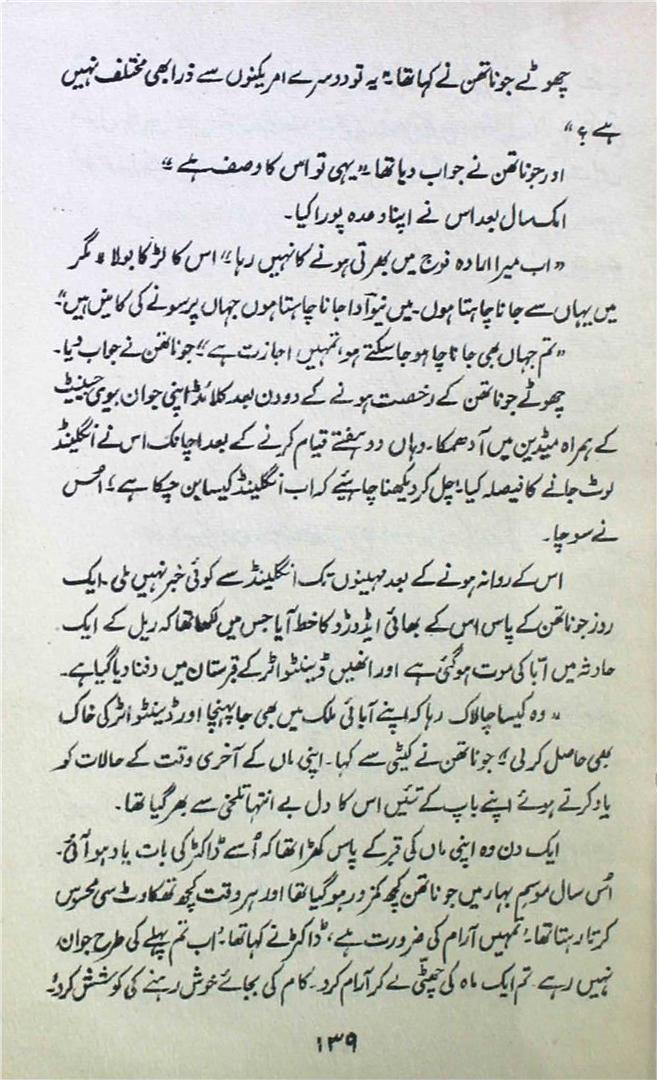 چھوٹے جوناتھن نے کہا تھا۔ "یہ تو دوسرے امریکنوں سے ذرا بھی مختلف نہیں
ہے؟"
اور جوناتھن نے جواب دیا تھا۔ "یہی تو اس کا وصف ہے۔"
ایک سال بعد اس نے اپنا وعدہ پورا کیا۔
"اب میرا ارادہ فوج میں بھرتی ہونے کا نہیں رہا۔" اس کا لڑکا بولا "مگر
میں یہاں سے جانا چاہتا ہوں۔ میں نیوآدا جانا چاہتا ہوں جہاں پر سونے کی کانیں ہیں۔"
"تم جہاں بھی جانا چاہو جا سکتے ہو، تمہیں اجازت ہے۔" جوناتھن نے جواب دیا۔
چھوٹے جوناتھن کے رخصت ہونے کے دو دن بعد کلائڈ اپنی جوان بیوی جینیٹ
کے ہمراہ میڈین میں آ دھمکا۔ وہاں دو ہفتے قیام کرنے کے بعد اچانک اس نے انگلینڈ
لوٹ جانے کا فیصلہ کیا۔ "چل کر دیکھنا چاہیئے کہ اب انگلینڈ کیسا بن چکا ہے۔" اُس
نے سوچا۔
اس کے روانہ ہونے کے بعد مہینوں تک انگلینڈ سے کوئی خبر نہیں ملی۔ ایک
روز جوناتھن کے پاس اس کے بھائی ایڈورڈ کا خط آیا جس میں لکھا تھا کہ ریل کے ایک
حادثہ میں ابّا کی موت ہو گئی ہے اور انھیں ڈینٹواٹر کے قبرستان میں دفنا دیا گیا ہے۔
"وہ کیسا چالاک رہا کہ اپنے آبائی ملک میں بھی جا پہنچا اور ڈینٹواٹر کی خاک
بھی حاصل کر لی۔" جوناتھن نے کیٹی سے کہا۔ اپنی ماں کے آخری وقت کے حالات کو
یاد کرتے ہوئے اپنے باپ کے تئیں اس کا دل بے انتہا تلخی سے بھر گیا تھا۔
ایک دن وہ اپنی ماں کی قبر کے پاس کھڑا تھا کہ اُسے ڈاکٹر کی بات یاد ہو آئی۔
اُس سال موسم بہار میں جوناتھن کچھ کمزور ہو گیا تھا اور ہر وقت کچھ تھکاوٹ سی محسوس
کرتا رہتا تھا۔ 'تمہیں آرام کی ضرورت ہے'، ڈاکٹر نے کہا تھا۔ 'اب تم پہلے کی طرح جوان
نہیں رہے۔ تم ایک ماہ کی چھٹی لے کر آرام کرو۔ کام کی بجائے خوش رہنے کی کوشش کرو۔'
۱۳۹